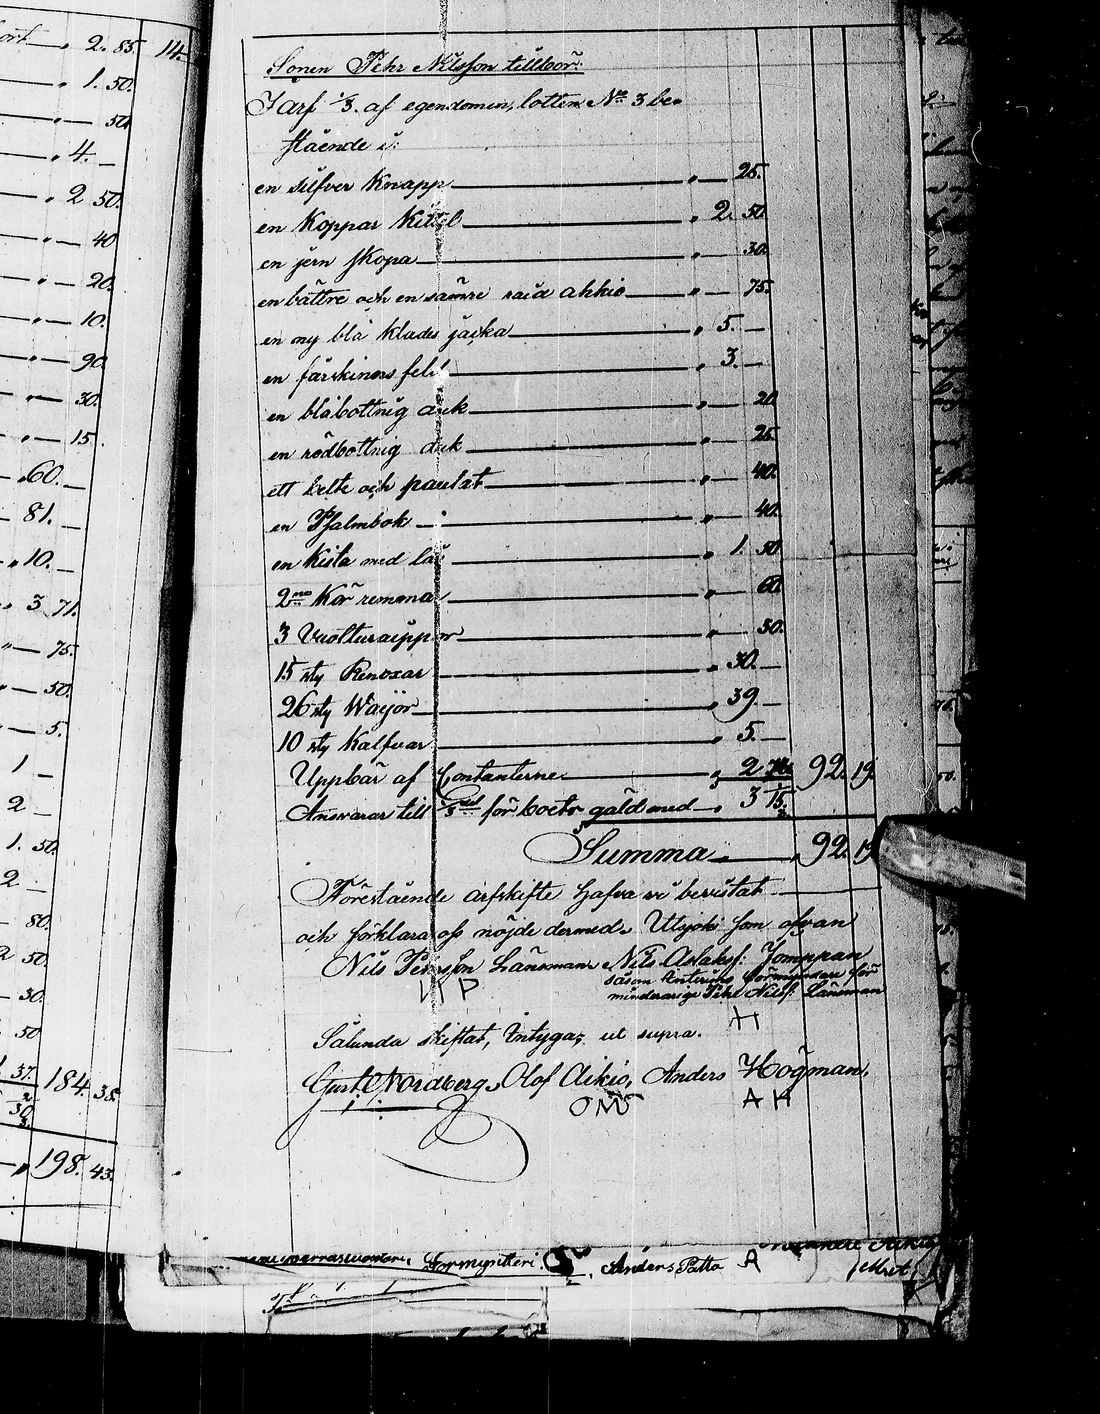 ört " 2. 85. 14.
" 1. 50.
" — 50.
" 4. —
" 2 50.
" — 40
" — 20.
" — 10.
" — 90
" — 30.
" — 15.
60. —
81. —
" 10. —
" 3 71.
" — 75.
" — 50.
" — 5.
1 —
2 —
1. 50.
2 —
80.
2 50.
— 30.
50
1 37. 184. 38.
30
— " 198. 43.
Sonen Pehr Nilsson tillkör:
I arf 1/3. af egendomen, lotten No 3 be-
stående i:
en silfver Knapp — " — 25.
en Koppar Kittel — " 2. 50
en jern skopa — " — 30.
en bättre och en sämre raid ahkio — " — 75.
en ny blå klädes jacka — " 5. —
en fårskinns fell — " 3. —
en blåbottnig duk — " — 20
en rödbottnig duk — " — 25.
ett belte och paulat — " — 40.
en Psalmbok — " — 40.
en Kista med lås — " 1. 50
2ne Kör remmar — " — 60.
3 Vuolturaippor — " — 30.
15 sty Renoxar — " 30. —
26 sty Waijor — " 39. —
10 sty Kalfvar — " 5. —
Uppbär af Contanterne — " 2 92. 19.
Ansvarar till 1/3del för boets gäld med — " 3 15.
Summa — " 92. 19
Förestående arfskifte hafva vi bevistat
och förklara oss nöjde dermed. Utsjoki som ofvan
Nils Persson Länsman. Nils Aslaks: Jomppan
såsom Anterins förmyndare för
minderårige Pehr Nilss: Länsman
N P
H
Sålunda skiftat, intyga; ut supra.
Gust. Nordberg. Olof Aikio, Anders Högman.
A H
Formynteri. Anders Patto A